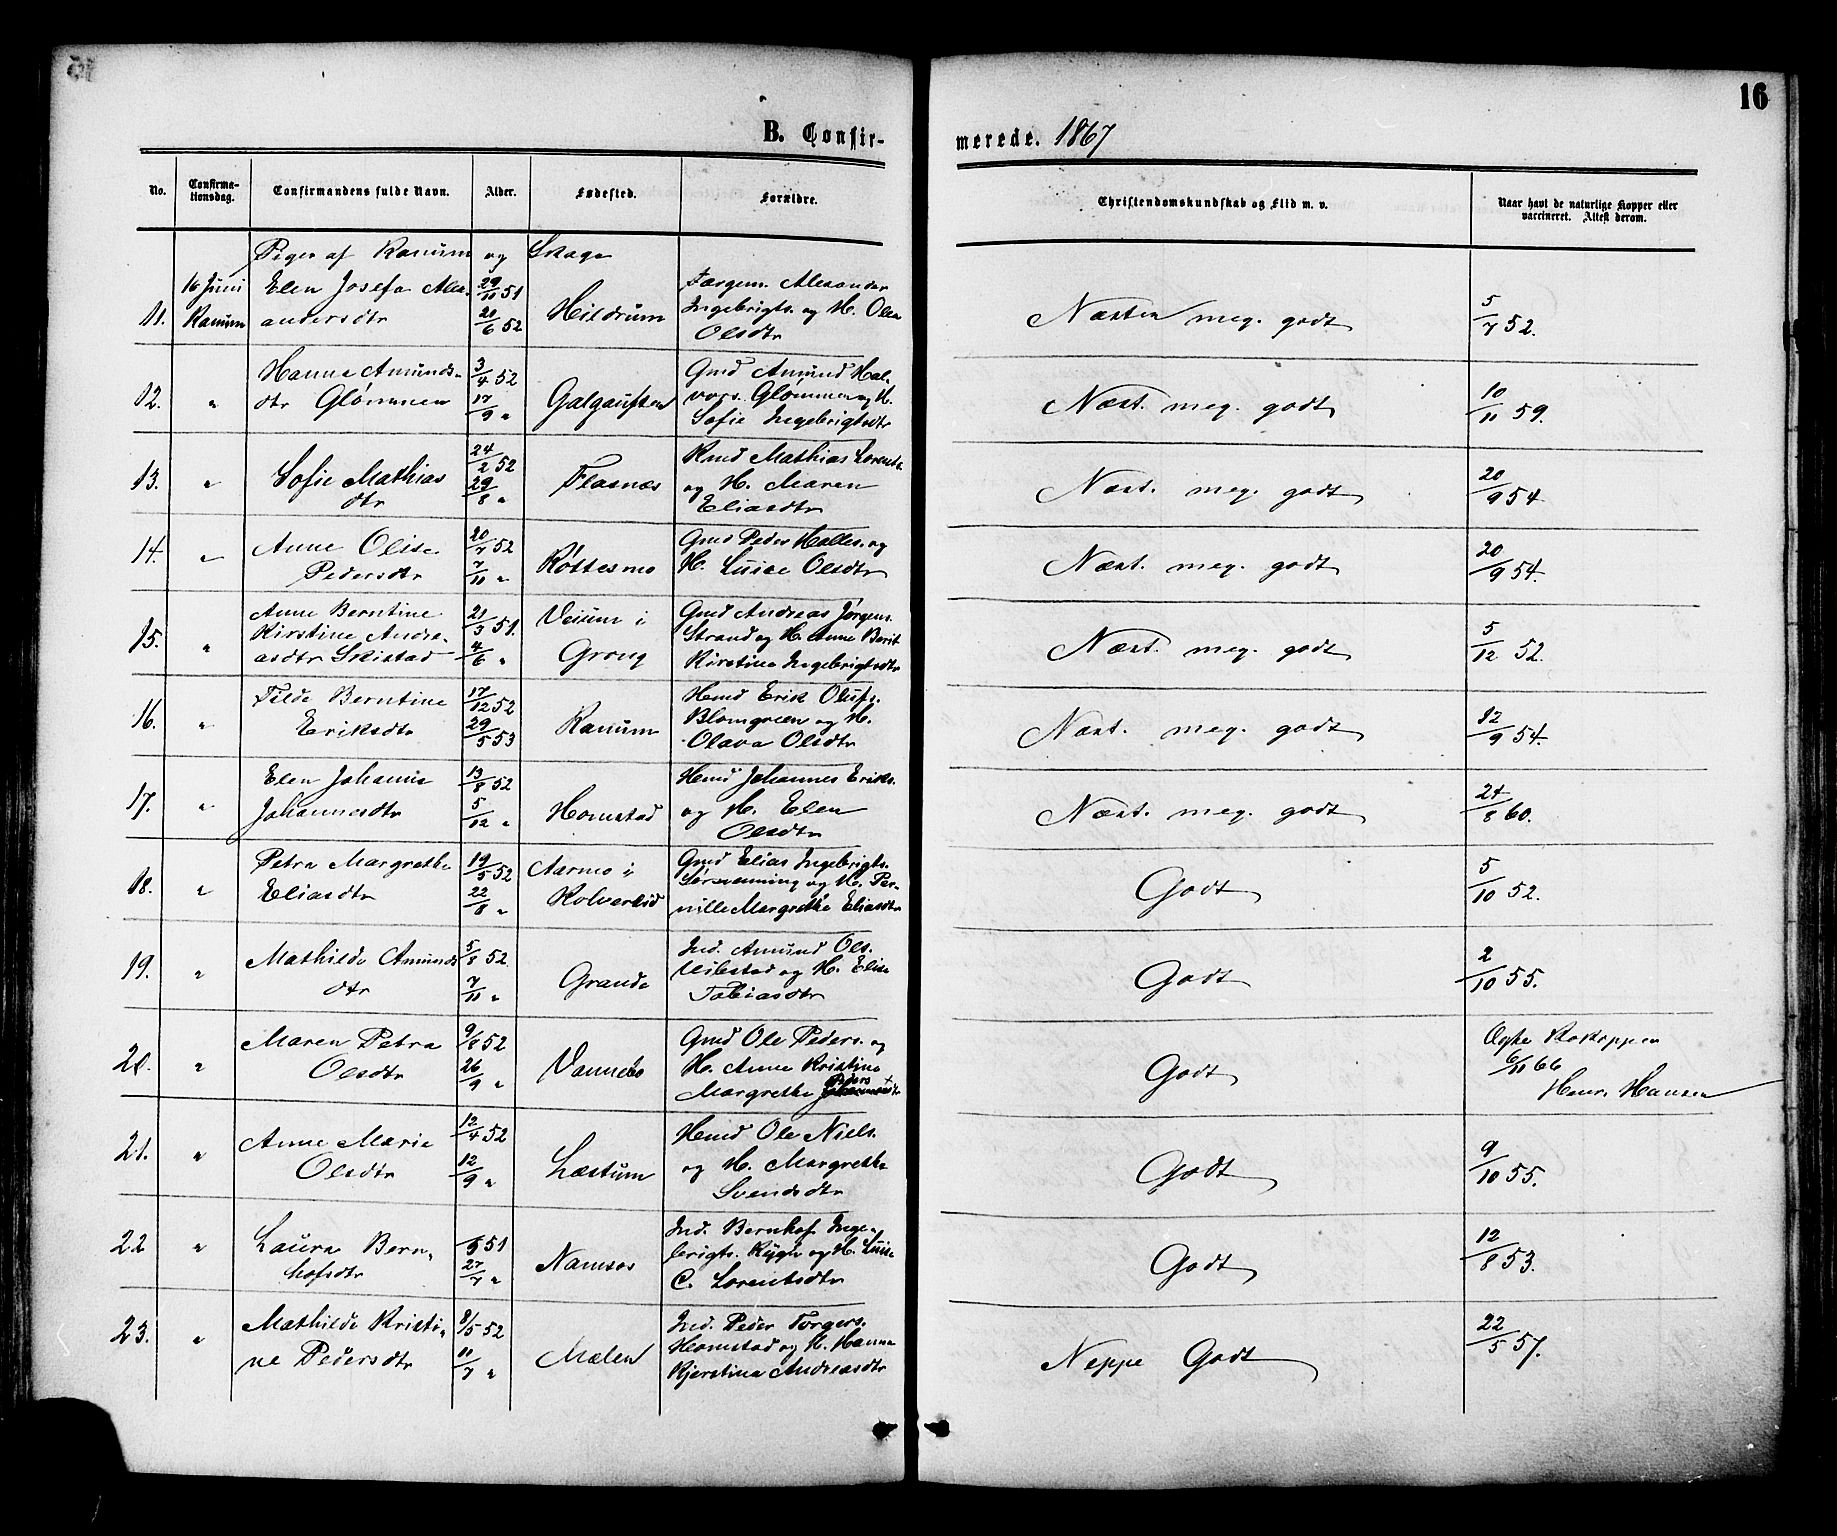 16
B. Confir-
merede. 1867
No.
Confirma-
tionsdag.
Confirmandens fulde Navn.
Alder.
Fødested.
Forældre.
Christendomskundskab og Flid m. v.
Naar havt de naturlige Kopper eller
vaccineret. Attest derom.
Piger af Ranum og Skage
11.
16 Juni
Ranum
Elen Josefa Alex-
andersdtr
29/11 51
20/6 52
Hildrum
Færgem. Alexander
Ingebrigts. og H. Olea
Olsdtr
Næsten meg. godt
5/7 52.
12.
"
Hanna Amunds-
dtr Glømmen
3/4 52
17/9 "
Galgauften
Gmd Amund Hal-
vors. Glømmen og H.
Sofie Ingebrigtsdtr
Næst. meg. godt
10/11 59.
13.
"
Sofie Mathias
dtr
24/2 52
29/8 "
Flasnæs
Kmd Mathias Lorents.
og H. Maren
Eliasdtr
Næst. meg. godt
20/9 54
14.
"
Anne Olise
Pedersdtr
20/7 52
7/11 "
Røttesmo
Gmd Peder Halles. og
H. Luise Olsdtr
Næst. meg. godt
20/9 54.
15.
"
Anne Berntine
Kirstine Andre-
asdtr Skistad
21/3 51.
4/6 "
Veium i
Grong
Gmd Andreas Jørgens.
Strand og H. Anne Berit
Kirstine Ingebrigtsdtr
Næst. meg. godt
5/12 52.
16.
"
Tilde Berntine
Eriksdtr
17/12 52
29/5 53
Ranum
Hmd Erik Olufs.
Blomgreen og H.
Olava Olsdtr
Næst. meg. godt
12/9 54.
17.
"
Elen Johanna
Johannesdtr
13/8 52
5/12 "
Homstad
Hmd Johannes Eriks.
og H. Elen
Olsdtr
Næst. meg. godt
24/8 60.
18.
"
Petra Margrethe
Eliasdtr
19/5 52
22/8 "
Aarmo i
Kolvereid
Gmd Elias Ingebrigts.
Sørsvenning og H. Per-
nille Margrethe Eliasdtr
Godt
5/10 52.
19.
"
Mathilde Amunds
dtr
5/8 52
7/11 "
Grande
Ind. Amund Ols.
Vibstad og H. Elise
Tobiasdtr
Godt
2/10 55.
20.
"
Maren Petra
Olsdtr
9/8 52
26/9 "
Vannebo
Gmd Ole Peders. og
H. Anne Kristine
Margrethe Peders +dtr
Godt
Ægte Kokopper
6/11 66
Henr. Hansen
21.
"
Anne Marie
Olsdtr
12/4 52
12/9 "
Læstum
Hmd Ole Niels.
og H. Margrethe
Svendsdtr
Godt
9/10 55.
22
"
Laura Bern-
hofsdtr
/9 51
27/7 "
Namsos
Ind. Bernhof Inge-
brigts. Rygh og H. Luise
C. Lorentsdtr
Godt
12/8 53.
23.
"
Mathilde Kristi-
ne Pedersdtr
8/5 52
11/7 "
Mælen
Ind. Peder Torgers.
Homstad og H. Hanna
Kjerstina Andreasdtr
Neppe Godt
22/5 57.